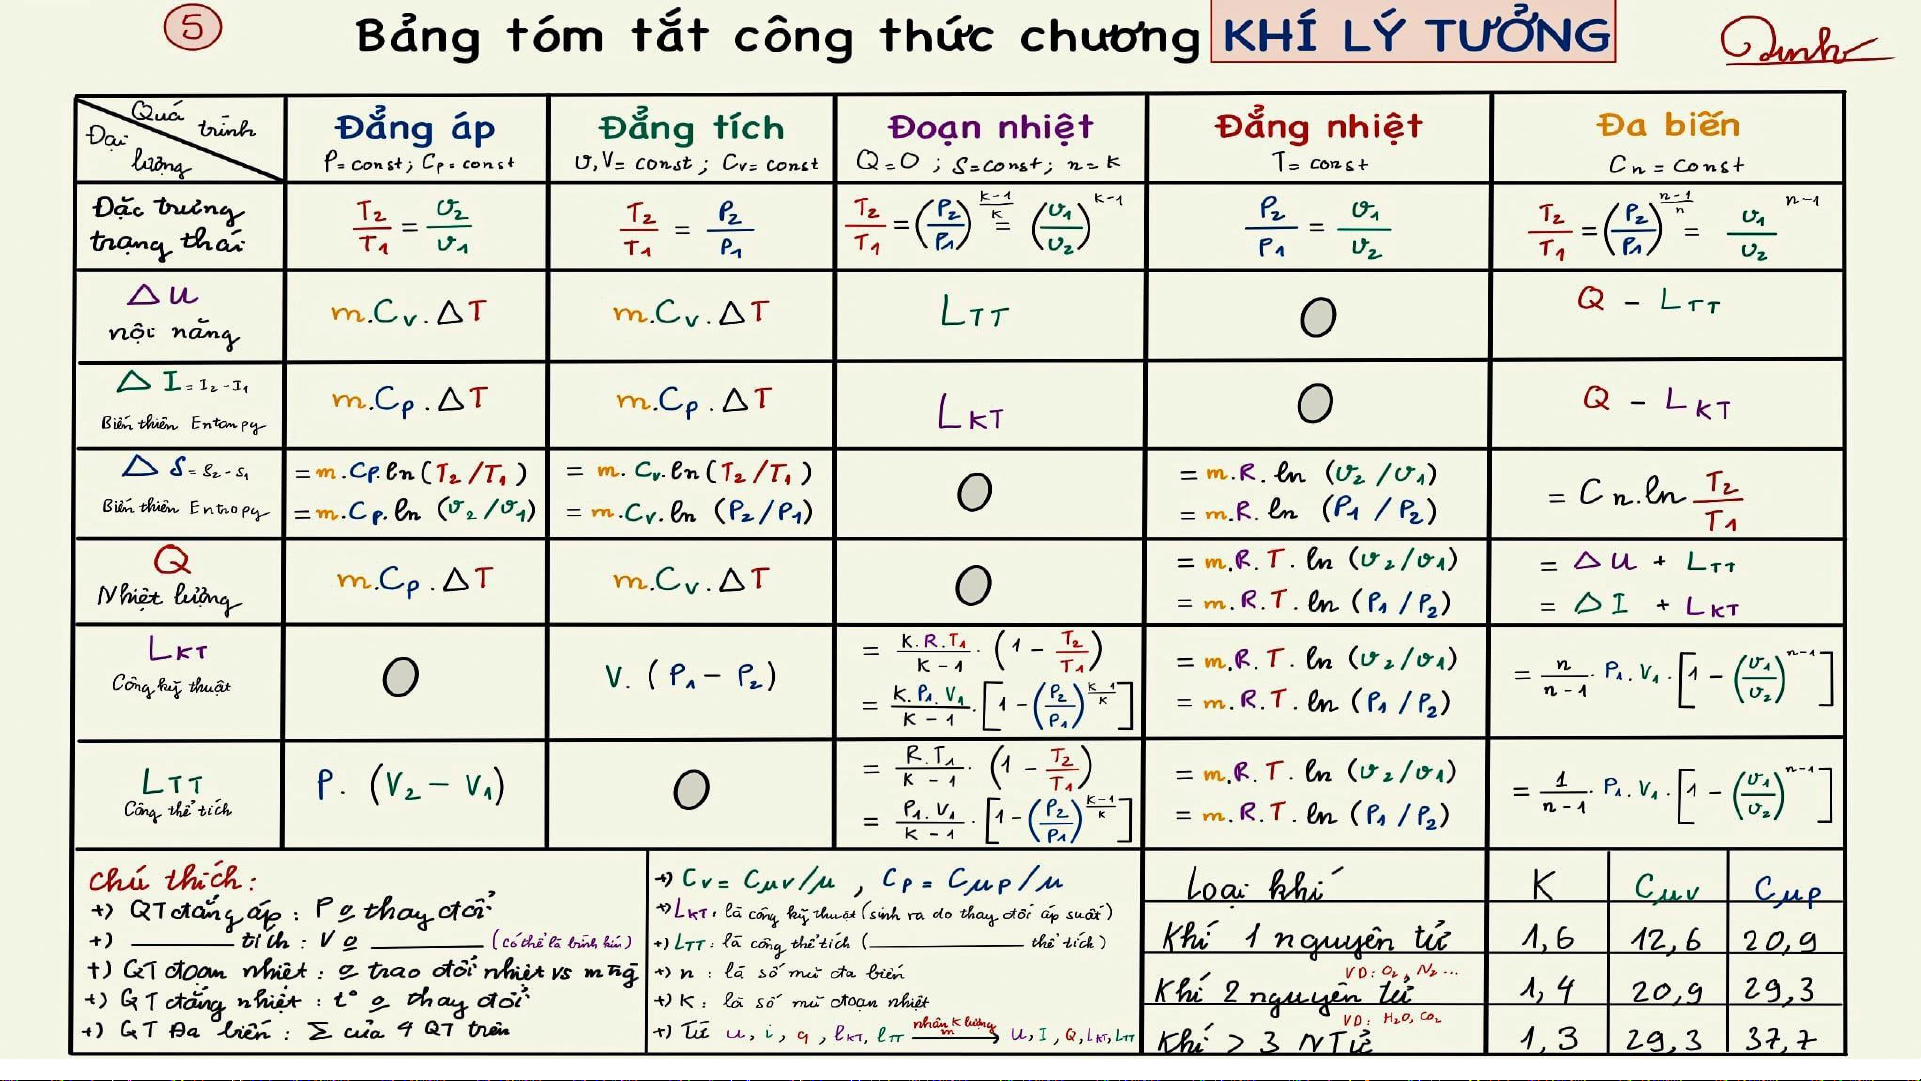 5
Bảng tóm tắt công thức chương KHÍ LÝ TƯỞNG
Quá trình
Đại lượng
Đẳng áp
P=const; Cp=const
Đẳng tích
υ,V= const; Cv=const
Đoạn nhiệt
Q=0; S=const; n=k
Đẳng nhiệt
T=const
Đa biến
Cn=const
Đặc trưng trạng thái
T2/T1 = υ2/υ1
T2/T1 = P2/P1
T2/T1 = (P2/P1)^(k-1/k) = (υ1/υ2)^k-1
P2/P1 = υ1/υ2
T2/T1 = (P2/P1)^(n-1/n) = υ1/υ2 ^n-1
ΔU nội năng
m.Cv.ΔT
m.Cv.ΔT
LTT
0
Q - LTT
ΔI = I2-I1
Biến thiên Entanpy
m.Cp.ΔT
m.Cp.ΔT
LKT
0
Q - LKT
ΔS = S2-S1
Biến thiên Entropy
= m.Cp.ln(T2/T1)
= m.Cp.ln (υ2/υ1)
= m.Cv.ln(T2/T1)
= m.Cv.ln (P2/P1)
0
= m.R.ln (υ2/υ1)
= m.R.ln (P1/P2)
= Cn.ln T2/T1
Q
Nhiệt lượng
m.Cp.ΔT
m.Cv.ΔT
0
= m.R.T.ln (υ2/υ1)
= m.R.T.ln (P1/P2)
= ΔU + LTT
= ΔI + LKT
LKT
Công kỹ thuật
0
V.(P1- P2)
= K.R.T1/K-1 . (1 - T2/T1)
= K.P1.V1/K-1 . [1-(P2/P1)^(K-1/K)]
= m.R.T.ln (υ2/υ1)
= m.R.T.ln (P1/P2)
= n/n-1 . P1.V1.[1 - (υ1/υ2)^n-1]
LTT
Công thể tích
P.(V2- V1)
0
= R.T1/K-1 . (1 - T2/T1)
= P1.V1/K-1 . [1-(P2/P1)^(K-1/K)]
= m.R.T.ln (υ2/υ1)
= m.R.T.ln (P1/P2)
= 1/n-1 . P1.V1.[1 - (υ1/υ2)^n-1]
Chú thích:
+) QT đẳng áp: P o thay đổi
+) tích: V o (có thể là bình kín)
+) QT đoạn nhiệt: o trao đổi nhiệt vs
+) QT đẳng nhiệt: t° o thay đổi
+) QT Đa biến: Σ của 4 QT trên
+) Cv= Cμv/μ, Cp= Cμp/μ
+) LKT: là công kỹ thuật (sinh ra do thay đổi áp suất)
+) LTT: là công thể tích ( thể tích)
+) n: là số mũ đa biến
+) K: là số mũ đoạn nhiệt
+) Từ u, i, q, lKT, lTT nhân K lượng m U, I, Q, LKT, LTT
Loại khí K Cμv Cμp
Khí 1 nguyên tử 1,6 12,6 20,9
VD: O2, N2...
Khí 2 nguyên tử 1,4 20,9 29,3
VD: H2O, CO2
Khí > 3 NTử 1,3 29,3 37,7